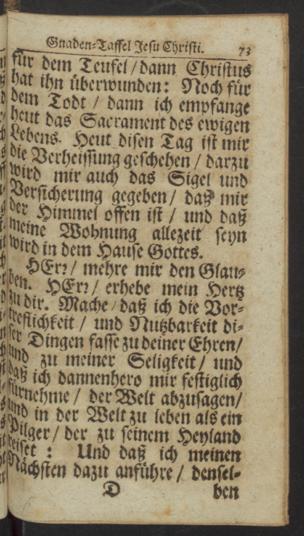 Gnaden-Taffel Jesu Christi. 73
für dem Teufel / dann Christus
hat ihn überwunden: Noch für
dem Todt / dann ich empfange
heut das Sacrament des ewigen
Lebens. Heut disen Tag ist mir
die Verheissung geschehen / darzu
wird mir auch das Sigel und
Versicherung gegeben / daß mir
der Himmel offen ist / und daß
meine Wohnung allezeit seyn
wird in dem Hause Gottes.
HErr / mehre mir den Glau-
ben. HErr / erhebe mein Hertz
zu dir. Mache / daß ich die Vor-
treflichkeit / und Nutzbarkeit di-
ser Dingen fasse zu deiner Ehren /
und zu meiner Seligkeit / und
daß ich dannenhero mir festiglich
fürnehme / der Welt abzusagen /
und in der Welt zu leben als ein
Pilger / der zu seinem Heyland
reiset : Und daß ich meinen
Nächsten dazu anführe / densel-
D ben